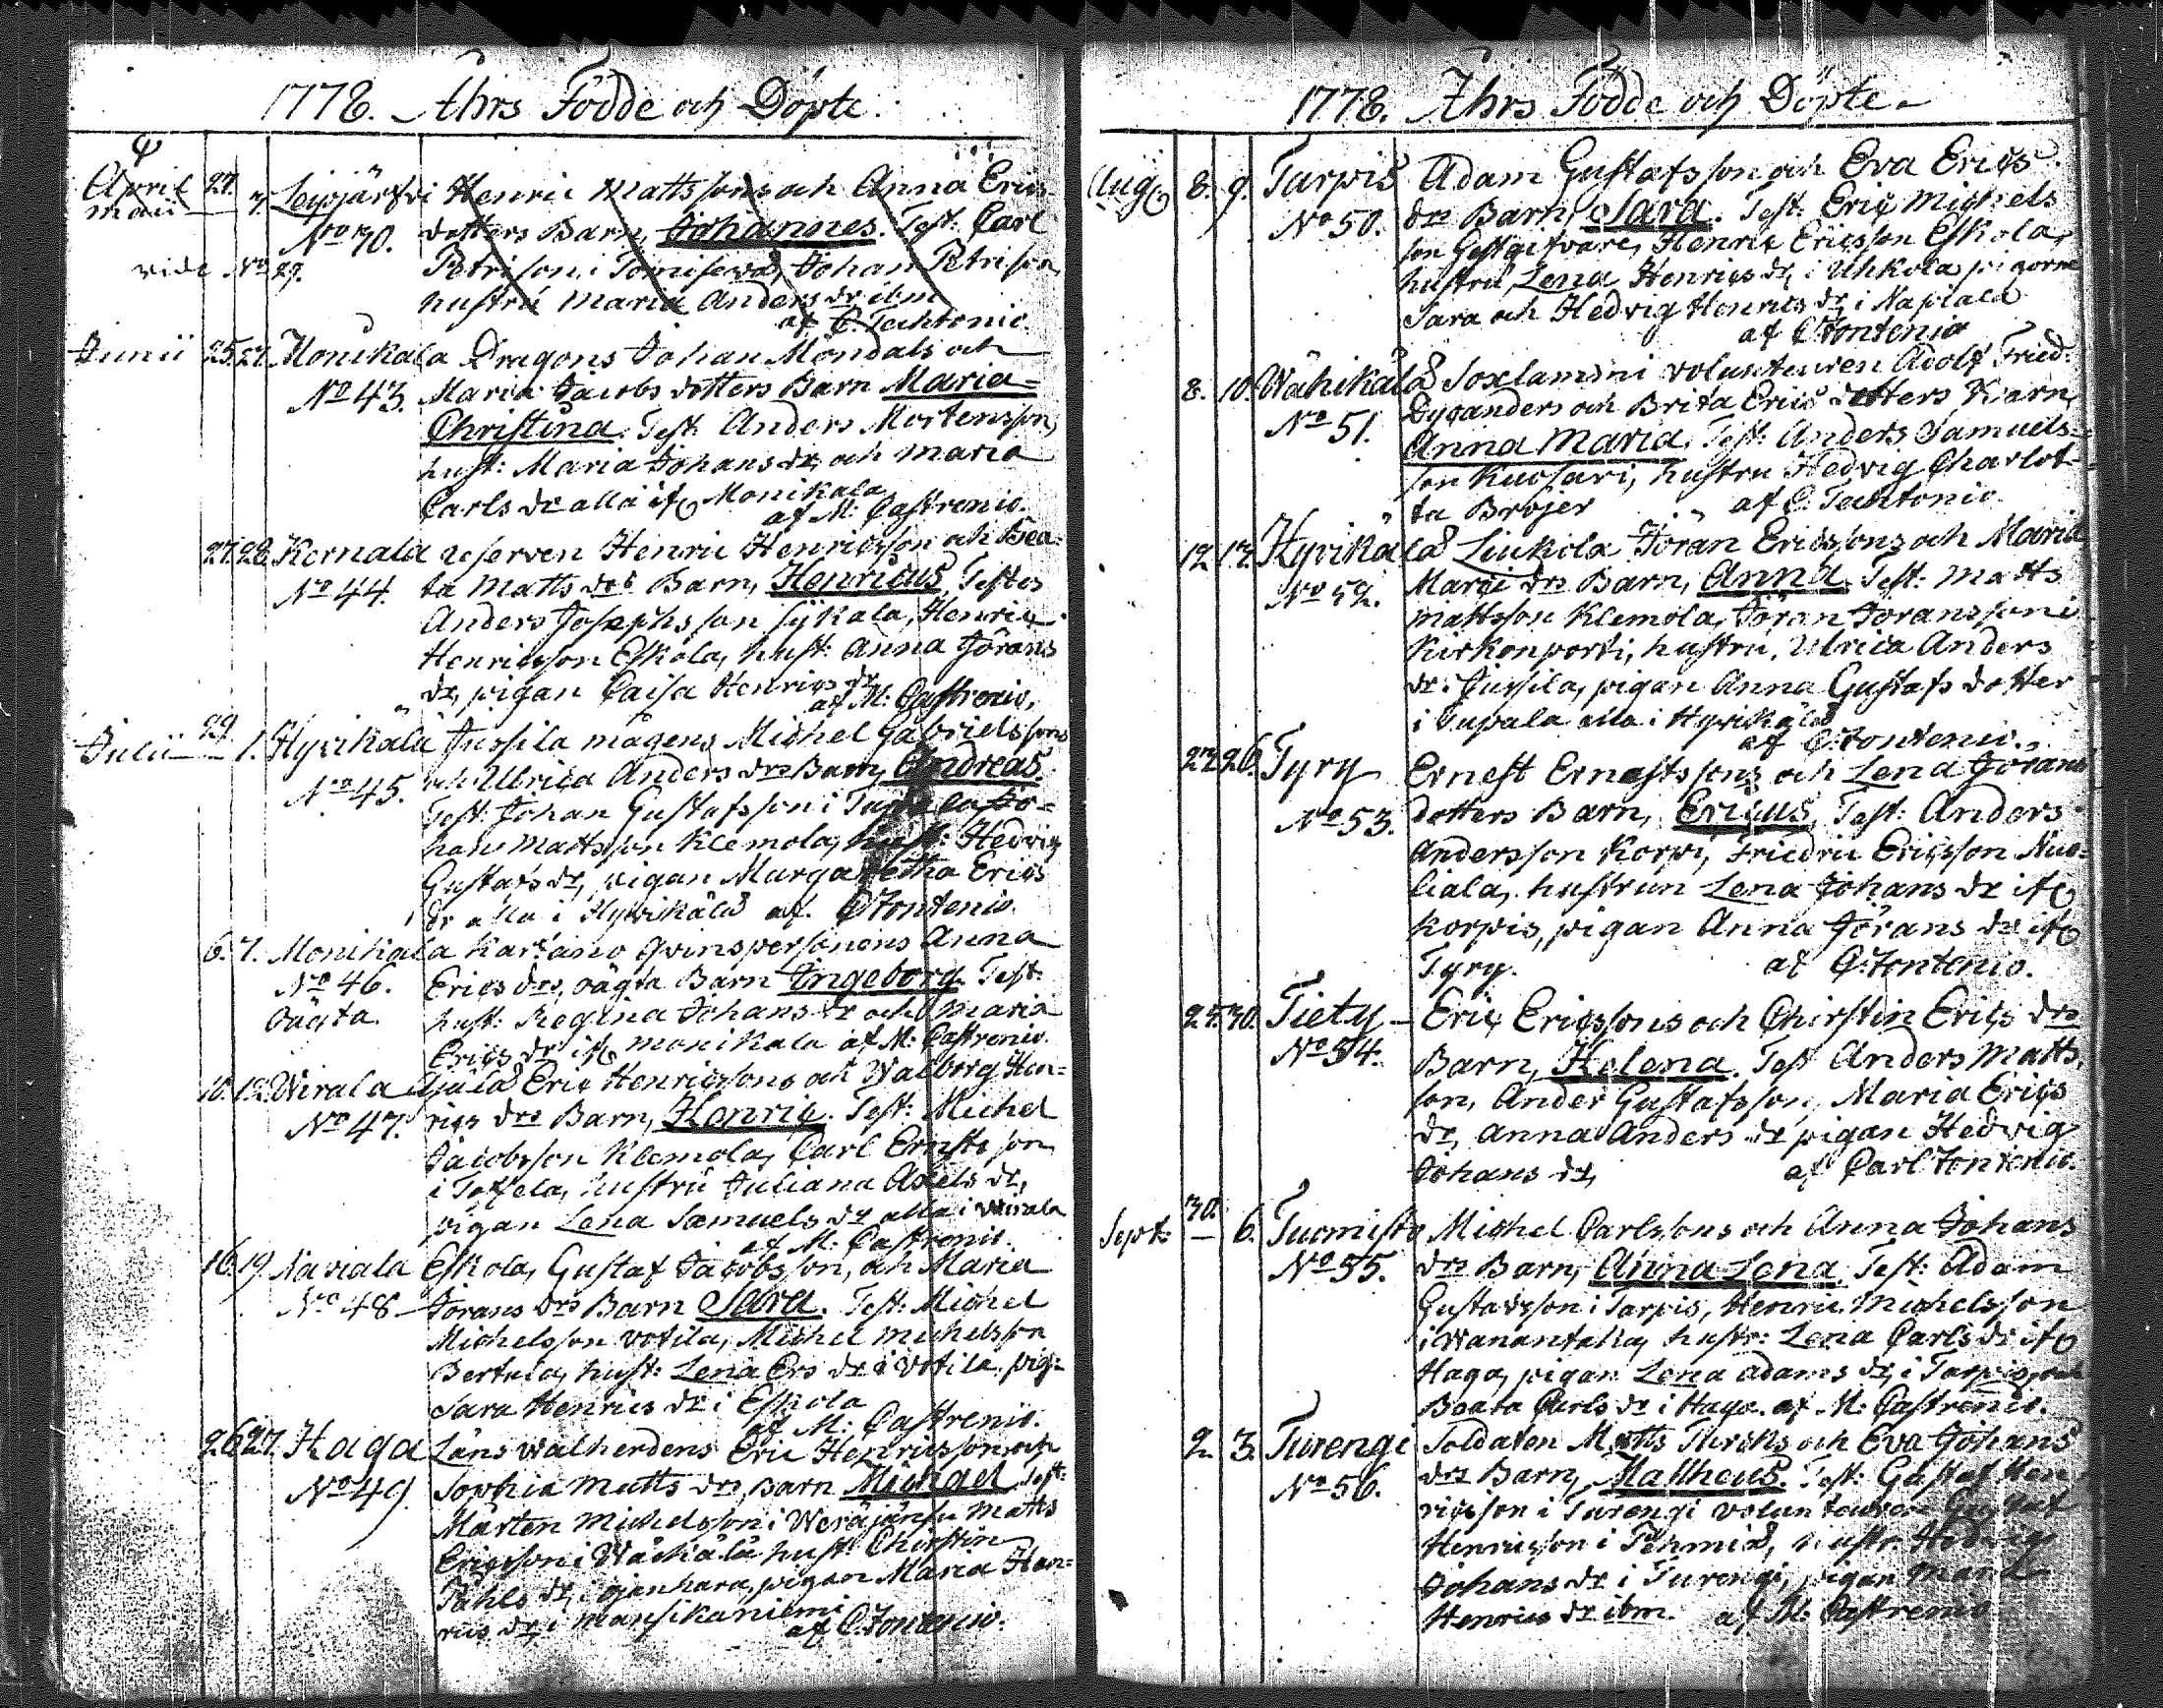 1778. Åhrs Födde och Döpte.
April 27.
maii 3. Leppjärfvi Henric Mattssons och Anna Erics
No 30. dotters Barn, Johannes. Test: Carl
vide No 29. Petri son i Tomisewa, Johan Petri son,
hustru Maria Anders dr ibm
af C. Techtonio.
Junii 25. 27. Monikala Dragons Johan Möndals och
No 43. Maria Jacobs dotters Barn Maria-
Christina. Test. Anders Mortensson,
hust: Maria Johans dr, och Maria
Carls dr alla ifr Monikala
af M: Castrenio.
27. 28. Kernala reserven Henric Henricsson och Bea-
No 44. ta Matts drs Barn, Henricus, Testes
Anders Josephsson Sÿkala, Henric
Henricsson Eskola, hust: Anna Görans
dr, pigan Caisa Henrics dr
af M: Castrenio.
29.
Julii 1. Hyvikälä Jussila mågens Michel Gabrielssons
No 45. och Ulrica Anders drs Barn, Andreas.
Test: Johan Gustafsson i Jo-
han Mattsson Klemola, hust: Hedvig
Gustafs dr, pigan Margaretha Erics
dr alla i Hyvikälä af. C Fontenio.
6. 7. Monikala Kartano qvinspersonens Anna
No 46. Erics drs, oägta Barn Ingeborg. Test:
Oägta. hust: Regina Johans dr och Maria
Erics dr ifr Monikala af M: Castrenio.
10. 12. Wirala Eric Henricssons och Walborg Hen-
No 47. rics drs Barn, Henric. Test: Michel
Jacobsson Klemola, Carl Ernsts son
i Toffela, hustru Juliana Axels dr,
pigan Lena Samuels dr alla i Wirala
af M: Castrenio.
16. 19. Naviala Eskola, Gustaf Jacobsson, och Maria
No 48 Jörans drs Barn Sara. Test: Michel
Michelsson Votila, Michel Michelsson
Bertula, hust: Lena Ers dr i Votila, pig:
Sara Henrics dr i Eskola
af M: Castrenio.
26. 27. Haga Läns Walherdens Eric Henricsson och
No 49. Sophia Matts drs, Barn Michael Test:
Mårten Michelsson i Weräjänsu Matts
Ericsson i Wächälä hust: Chirstin
Påhls dr, i Ojanhara, pigan Maria Hen-
rics dr, i Mansikaniemi
af C. Fontenio.
1778. Åhrs Födde och Döpte.
Aug 8. 9. Turpis Adam Gustafsson och Eva Erics
No 50. drs Barn, Sara. Test: Eric Michels
son Gestgifvare, Henric Ericsson Eskola,
hustru, Lena Henrics dr, i Uhkola pigorne
Sara och Hedvig Henrics dr, i Napiala
af C Fontenio
8. 10. Wähikälä Soxlamini voluntairen Adolf Fried:
No 51. Dyganders och Brita Erics dotters Barn,
Anna Maria. Test: Anders Samuels-
son Kuusari, hustru Hedvig Charlot-
ta Bröjer af C. Techtonio.
12. 13. Hyvikälä Liukola Jöran Ericssons och Maria
No 52. Marci drs Barn, Anna Test: Matts
Mattsson Klemola, Jöran Jöransson i
Kirkonporti, hustru, Ulrica Anders
dr i Jussila, pigan Anna Gustafs dotter
i Tupala alla i Hyvikälä
af C: Fontenio.
23. 26. Tyry Ernest Ernestssons och Lena Görans
No 53. dotters Barn, Ericus, Test: Anders
Andersson Korpi, Friedric Ericsson Nuo-
liala, hustrun Lena Johans dr ifr
Korpis, pigan Anna Jörans dr ifr
Tyry. af C: Fontenio.
24. 30. Tiety Eric Ericssons och Chirstin Erics drs
No 54. Barn, Helena. Test Anders Matts-
son, Ander Gustafsson, Maria Erics
dr, Anna Anders dr pigan Hedvig
Johans dr, af Carl Fontenio.
30.
Sept: 6. Tuomisto Michel Carlssons och Anna Johans
No 55. drs Barn, Anna Lena. Test: Adam
Gustavsson i Tarpis, Henric Michelsson
i Wanantaka, hustr: Lena Carls dr ifr
Haga, pigan Lena Adams dr, i Tarpis och
Beata Carls dr i Haga. af M: Castrenio.
2. 3. Turengi Soldaten Matts Thricks och Eva Johans
No 56. drs Barn, Mattheus. Test: Gustaf Hen
ricsson i Turengi voluntairen Gustaf
Henricsson i Pehmiä, hustr. Hedvig
Johans dr i Turengi, pigan Maria
Henrics dr ibm. af M: Castrenio